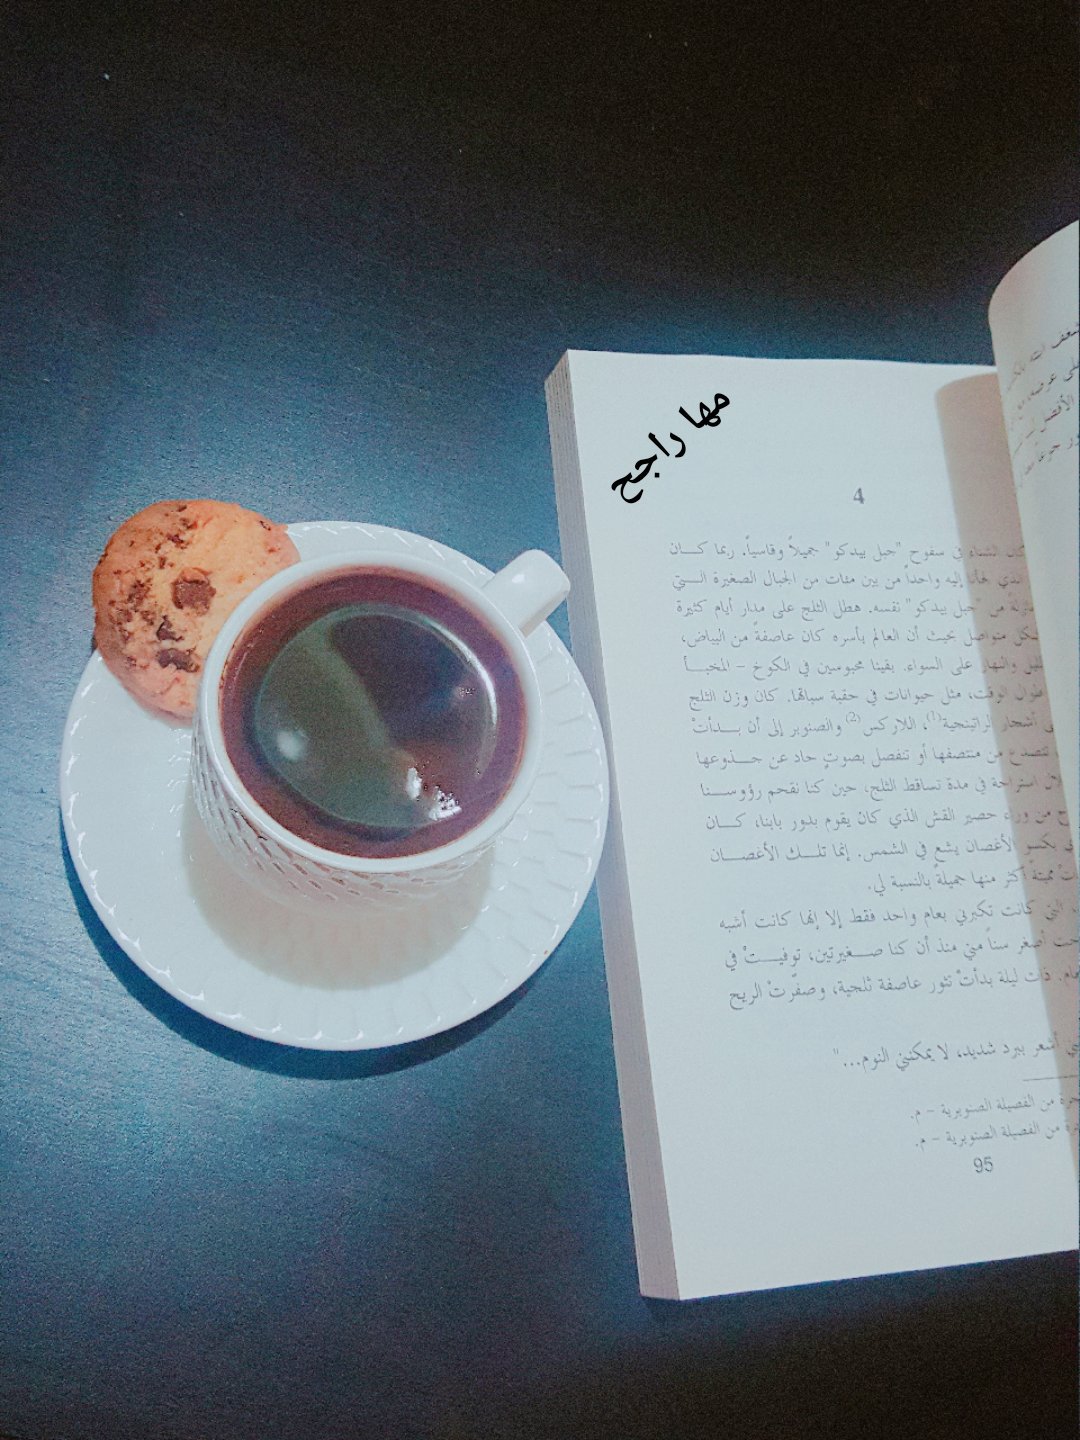 مها راجح
شعف
على عرضه،
الأفضل
4
كان الشتاء في سفوح "جبل بيدكو" جميلاً وقاسياً. ربما كـــان
ذي لجأنا إليه واحداً من بين مئات من الجبال الصغيرة الـــتي
من "جبل بيدكو" نفسه. هطل الثلج على مدار أيام كثيرة
متواصل بحيث أن العالم بأسره كان عاصفةً من البياض،
ليل والنهار على السواء. بقينا محبوسين في الكوخ - المخبـــأ
طوال الوقت، مثل حيوانات في حقبة سباتها. كان وزن الثلج
أشجار الراتينجية(1)، اللاركس(2) والصنوبر إلى أن بـــدأتْ
تتصدع من منتصفها أو تنفصل بصوتٍ حاد عن جـــذوعها
استراحة في مدة تساقط الثلج، حين كنا نقحم رؤوســـنا
من وراء حصير القش الذي كان يقوم بدور بابنا، كـــان
بكسو الأغصان يشع في الشمس. إنما تلـــك الأغصـــان
ميتةً أكثر منها جميلةً بالنسبة لي.
التي كانت تكبرني بعام واحد فقط إلا إنها كانت أشبه
أصغر سناً مني منذ أن كنا صـــغيرتين، توفيـــتْ في
ذات ليلة بدأتْ تثور عاصفة ثلجية، وصفّرتْ الريح
أشعر ببرد شديد، لا يمكنني النوم..."
من الفصيلة الصنوبرية - م.
من الفصيلة الصنوبرية - م.
95